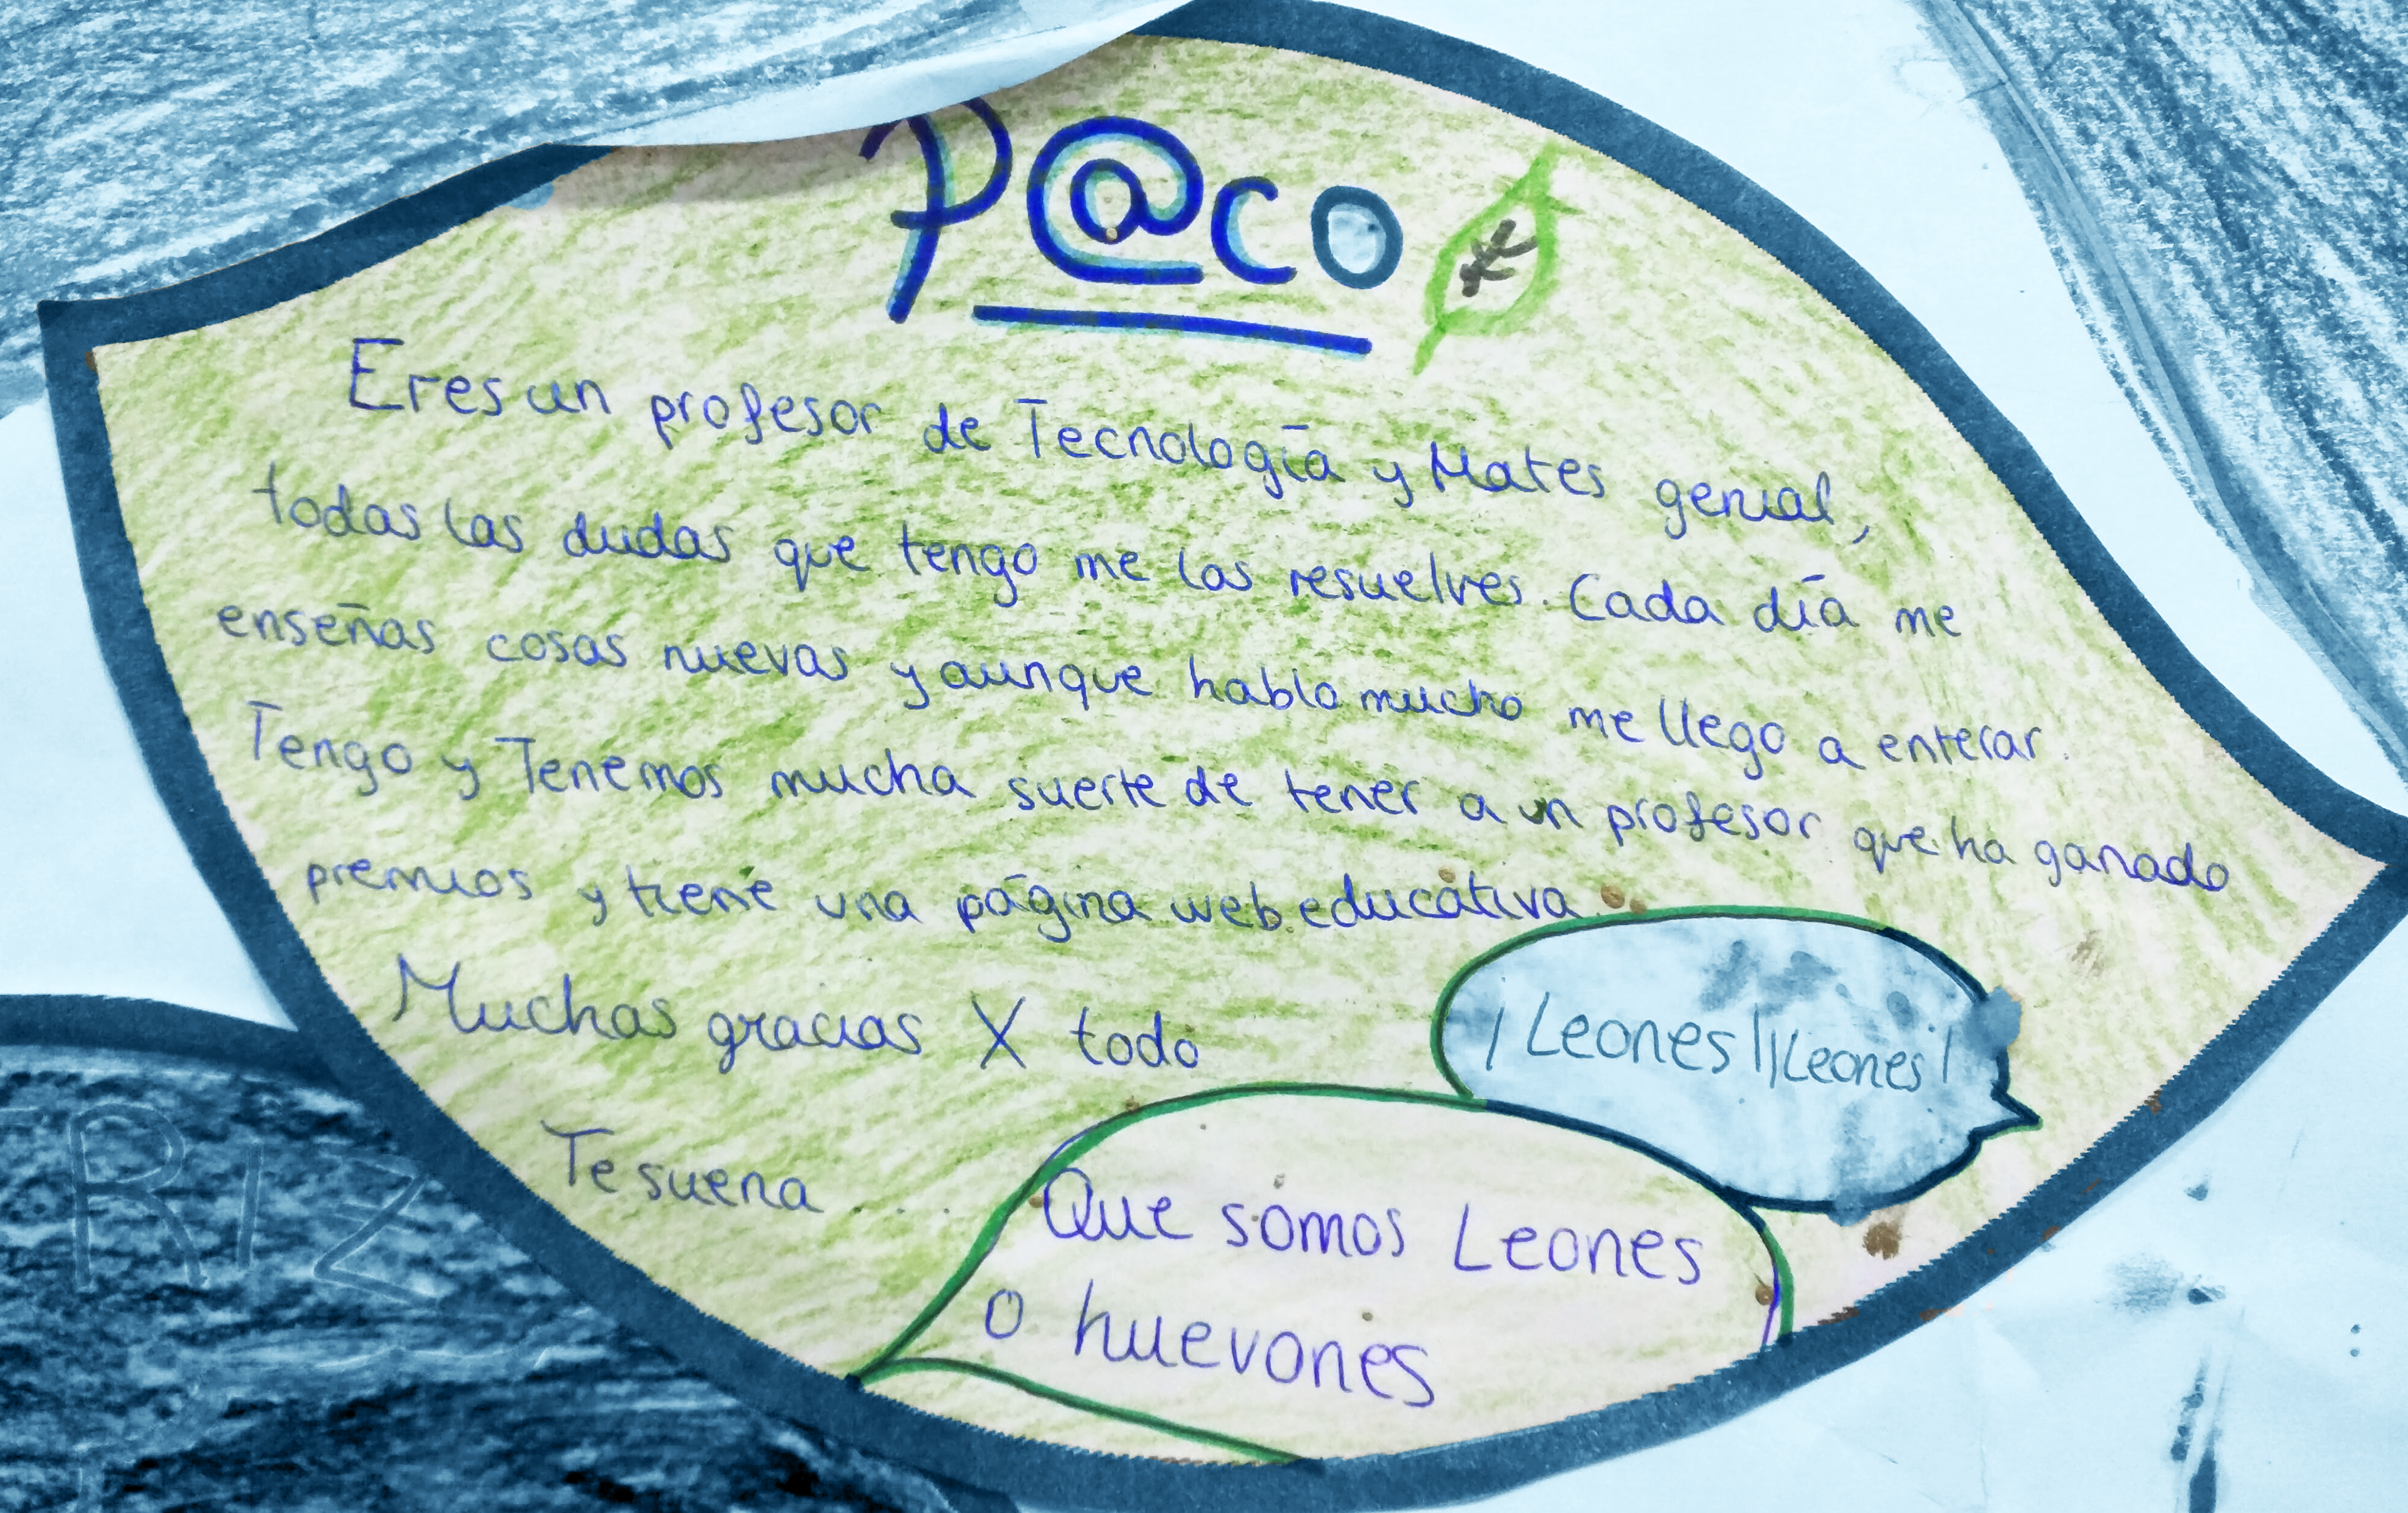 P@co
Eres un profesor de Tecnología y Mates genial,
todas las dudas que tengo me las resuelves. Cada día me
enseñas cosas nuevas y aunque hablo mucho me llego a enterar.
Tengo y Tenemos mucha suerte de tener a un profesor que ha ganado
premios y tiene una página web educativa.
Muchas gracias X todo
¡Leones! ¡Leones!
Te suena ....
Que somos Leones
o huevones
RIZ